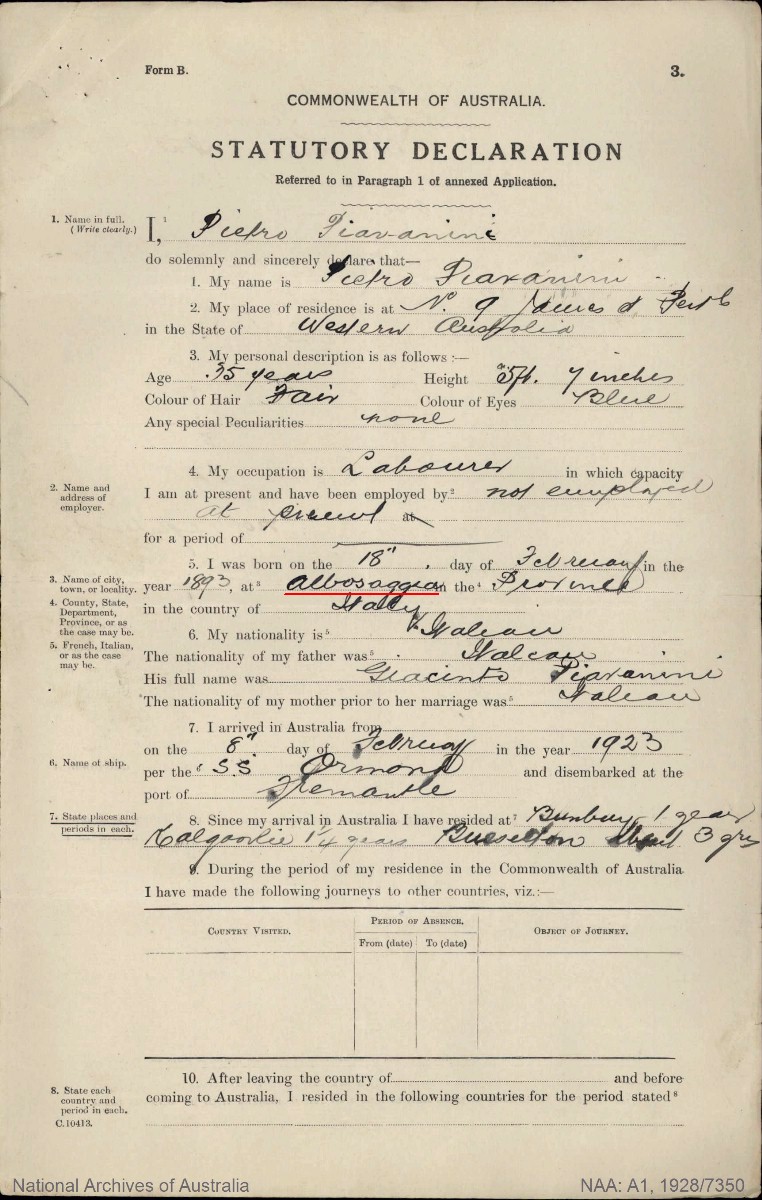 Form B.
3.
COMMONWEALTH OF AUSTRALIA.
STATUTORY DECLARATION
Referred to in Paragraph 1 of annexed Application.
1. Name in full.
(Write clearly.)
I,¹ Pietro Piavanini
do solemnly and sincerely declare that—
1. My name is Pietro Piavanini
2. My place of residence is at No. 9 James St Perth
in the State of Western Australia
3. My personal description is as follows :—
Age 35 years Height 5ft. 7 inches
Colour of Hair Fair Colour of Eyes Blue
Any special Peculiarities none
4. My occupation is Labourer in which capacity
2. Name and
address of
employer.
I am at present and have been employed by² not employed
at present at
for a period of
5. I was born on the 18" day of February in the
3. Name of city,
town, or locality.
year 1893, at³ Albosaggia in the⁴ Province
4. County, State,
Department,
Province, or as
the case may be.
in the country of Italy
5. French, Italian,
or as the case
may be.
6. My nationality is⁵ Italian
The nationality of my father was⁵ Italian
His full name was Giacinto Piavanini
The nationality of my mother prior to her marriage was⁵ Italian
7. I arrived in Australia from
on the 8" day of February in the year 1923
6. Name of ship.
per the⁶ S.S Ormond and disembarked at the
port of Fremantle
7. State places and
periods in each.
8. Since my arrival in Australia I have resided at⁷ Bunbury 1 year
Kalgoorlie 1¼ years Busselton about 3 yrs
9. During the period of my residence in the Commonwealth of Australia
I have made the following journeys to other countries, viz.:—
COUNTRY VISITED.
PERIOD OF ABSENCE.
From (date) To (date)
OBJECT OF JOURNEY.
10. After leaving the country of and before
8. State each
country and
period in each.
coming to Australia, I resided in the following countries for the period stated⁸
C.10413.
National Archives of Australia
NAA: A1, 1928/7350